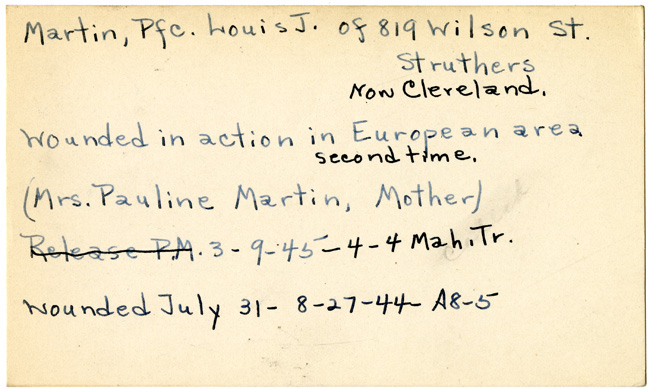 Martin, Pfc. Louis J. of 819 Wilson St.
Struthers
Now Cleveland.
Wounded in action in European area
second time.
(Mrs. Pauline Martin, Mother)
Release P.M. 3-9-45-4-4 Mah. Tr.
Wounded July 31- 8-27-44- A8-5